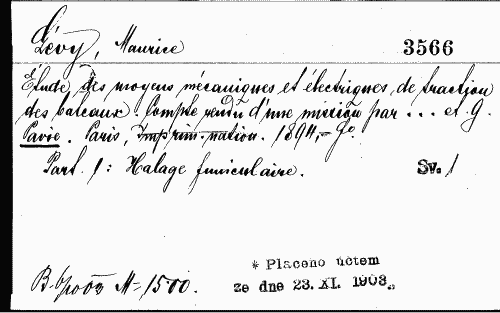 Lévy, Maurice
3566
Étude des moyens mécaniques et électriques de traction
des bateaux. Compte rendu d'une mission par ... et G.
Pavie. Paris, Imprim. nation. 1894,
Part. 1: Halage funiculaire.
Sv. 1
* Placeno účtem
M= 1500.
ze dne 23. XI. 1903.